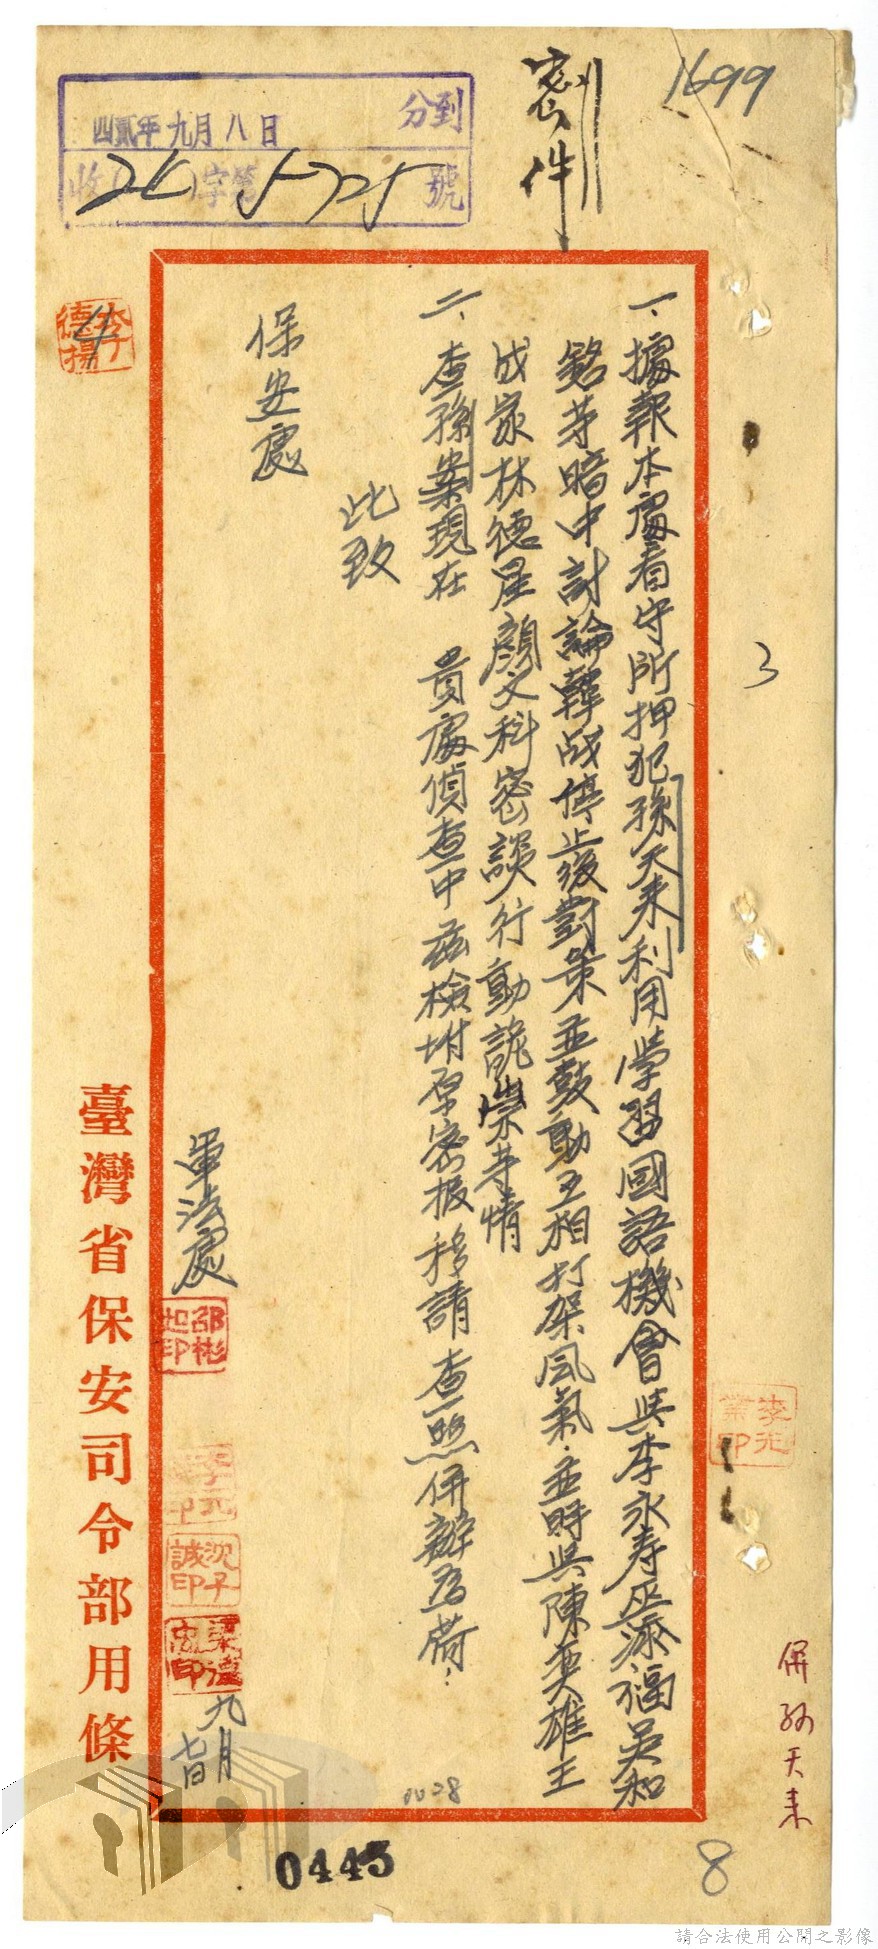 1699
密件
分到
四貳年九月八日
收 字第 號
一、據報本處看守所押犯孫天來利用學習國語機會與李永寿丘添福吳和
銘等暗中討論韓战停止後對策並鼓動互相打架风氣.並時與陳英雄王
成家林德星顏文科密談行動詭祟等情
二、查孫案現在 貴處偵查中茲檢坿原密报移請 查照併辦為荷:
此致
保安處
軍法處
邵彬如印
沈子誠印
九月
七日
李德揚
臺灣省保安司令部用條
3
併孙天来
0028
0445
8
請合法使用公開之影像